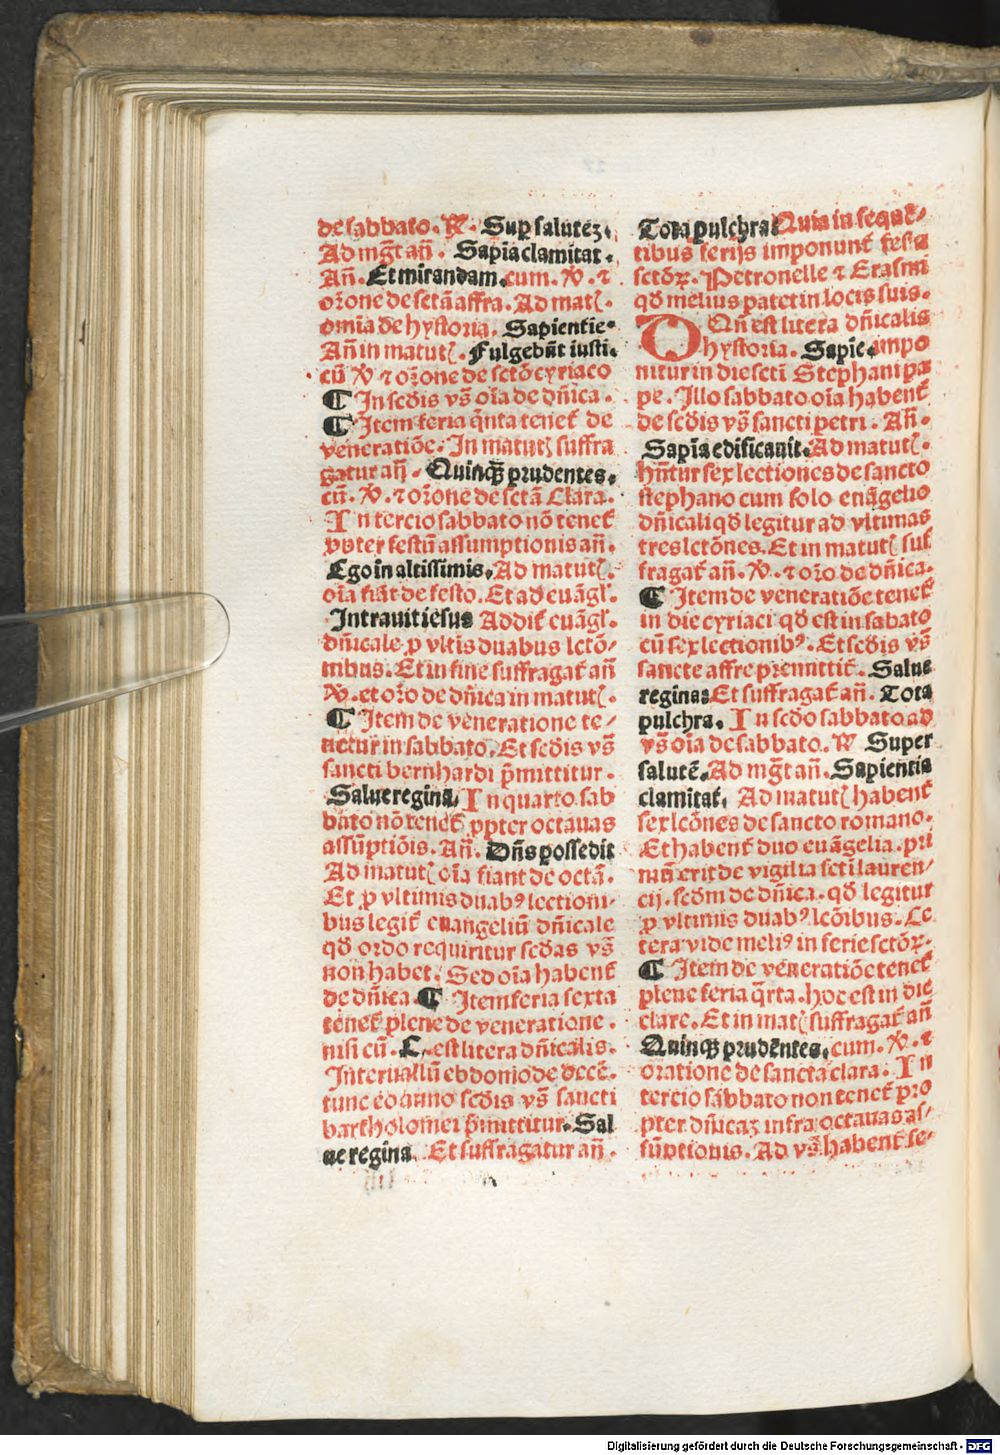 de sabbato. R̷. Sup salutez.
Ad mgt̄ an̄. Sapīa clamitat.
An̄. Et mirandam. cum. V̷. ⁊
orōne de sctā affra. Ad matꝭ.
omīa de hystoria. Sapientie.
An̄ in matutꝭ. Fulgebūt iusti.
cū V̷ ⁊ orōne de sctō cyriaco
¶ In scd̄is vs̄ oīa de dn̄ica.
¶ Item feria qn̄ta tenet̄ de
veneratiōe. In matutꝭ suffra
gatur an̄. Quinqꝫ prudentes.
cū. V̷. ⁊ orōne de sctā Clara.
In tercio sabbato nō tenet̄
ꝓpter festū assumptionis an̄.
Ego in altissimis. Ad matutꝭ.
oīa fiāt de festo. Et ad euāgl̄.
Intrauit iesus Addit̄ euāgl̄.
dn̄icale ꝓ vltis duabus lctō⸗
nibus. Et in fine suffragat̄ an̄
V̷. et orō de dn̄ica in matutꝭ.
¶ Item de veneratione te⸗
netur in sabbato. Et scd̄is vs̄
sancti bernhardi p̄mittitur.
Salue regina. In quarto sab
bato nō tenet̄ ꝓpter octauas
assūptiōis. An̄. Dn̄s possedit
Ad matutꝭ oīa fiant de octā.
Et ꝓ vltimis duabꝰ lectioni⸗
bus legit̄ euangeliū dn̄icale
qd̄ ordo requiritur scd̄as vs̄
non habet. Sed oīa habent̄
de dn̄ica ¶ Item feria sexta
tenet̄ plene de veneratione.
nisi cū. C. est litera dn̄icalis.
Interuallū ebdomode dece.
tunc eo anno scd̄is vs̄ sancti
bartholomei p̄mittitur. Sal
ue regina Et suffragatur an̄.
Tota pulchra. Quia in sequē⸗
tibus ferijs imponunt̄ festa
sctōꝝ. Petronelle ⁊ Erasmi
qd̄ melius patet in locis suis.
QVn̄ est litera dn̄icalis
hystoria. Sapie. impo
nitur in die scti Stephani pa
pe. Illo sabbato oīa habent̄
de scd̄is vs̄ sancti petri. An̄.
Sapīa edificauit. Ad matutꝭ.
hn̄tur sex lectiones de sancto
stephano cum solo euāgelio
dn̄icali qd̄ legitur ad vltimas
tres lctōnes. Et in matutꝭ suf
fragat̄ an̄. V̷. ⁊ orō de dn̄ica.
¶ Item de veneratiōe tenet̄
in die cyriaci qd̄ est in sabato
cū sex lectionibꝰ. Et scd̄is vs̄
sancte affre premittit̄. Salue
regina. Et suffragat̄ an̄. Tota
pulchra. In scd̄o sabbato ad
vs̄ oīa de sabbato. R̷ Super
salutē. Ad mgt̄ an̄. Sapientia
clamitat. Ad matutꝭ habent̄
sex lcōnes de sancto romano.
Et habent̄ duo euāgelia. pri
mū erit de vigilia scti lauren⸗
cij. scd̄m de dn̄ica. qd̄ legitur
ꝓ vltimis duabꝰ lcōibus. Ce
tera vide meliꝰ in serie sctōꝝ.
¶ Item de veneratiōe tenet̄
plene feria q̄rta. hoc est in die
clare. Et in matꝭ suffragat̄ an̄
Quinqꝫ prudētes. cum. V̷. ⁊
oratione de sancta clara. In
tercio sabbato non tenet̄ pro
pter dn̄icaꝫ infra octauas as⸗
sūptionis. Ad vs̄ habent̄ se⸗
Digitalisierung gefördert durch die Deutsche Forschungsgemeinschaft - DFG